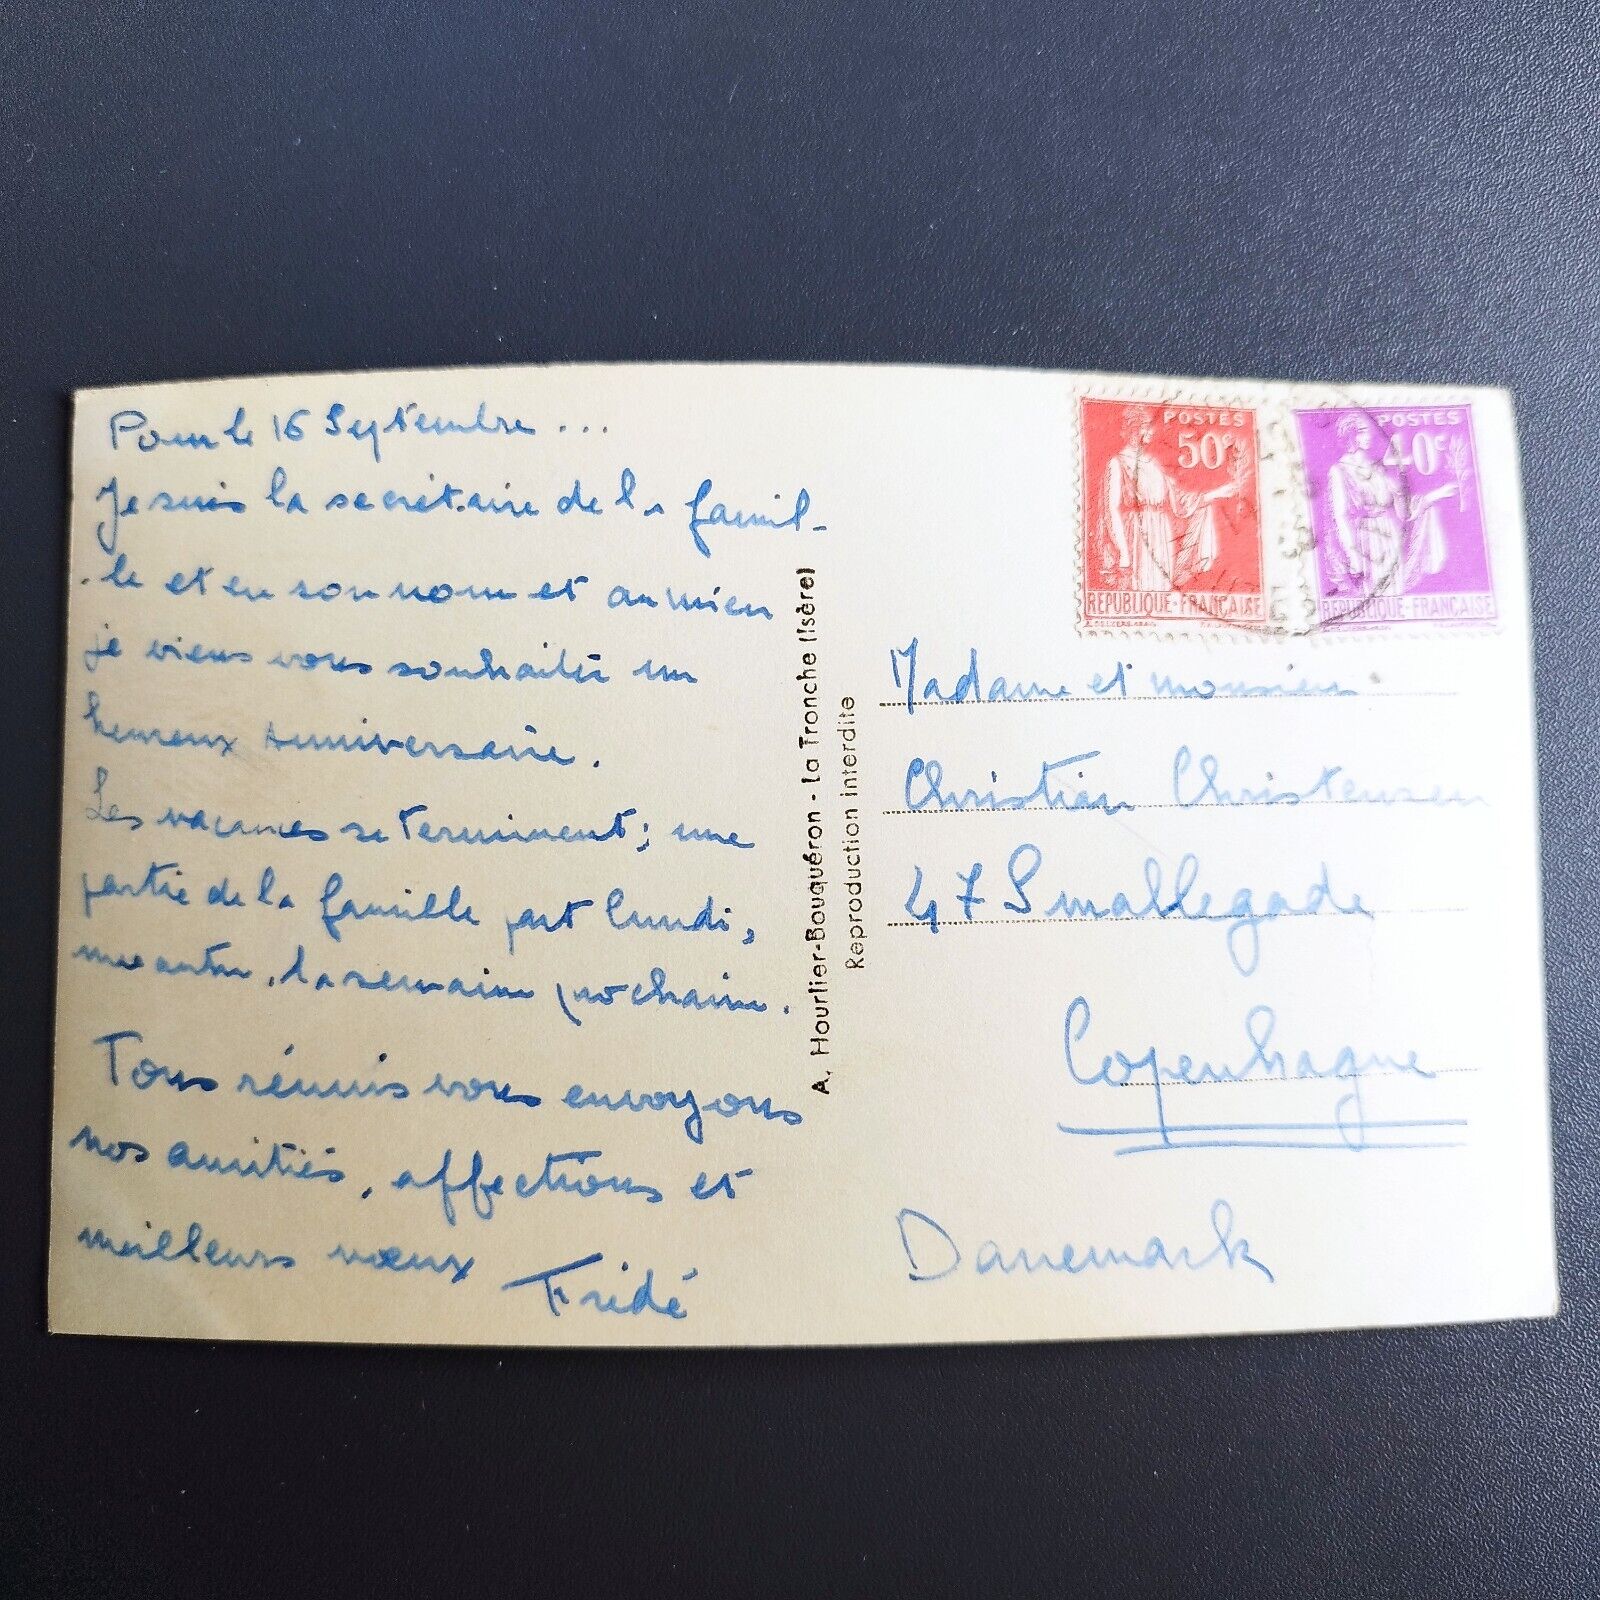 Pour le 16 Septembre...
Je suis la secrétaire de la famil-
-le et en son nom et au mien
je viens vous souhaiter un
heureux anniversaire.
Les vacances se terminent; une
partie de la famille part lundi,
une autre, la semaine prochaine.
Tous réunis vous envoyons
nos amitiés, affections et
meilleurs vœux
Fridé
A. Hourlier-Bouquéron - La Tronche (Isère)
Reproduction interdite
POSTES
50c
REPUBLIQUE-FRANÇAISE
POSTES
40c
REPUBLIQUE-FRANÇAISE
Madame et monsieur
Christian Christensen
47 Smallegade
Copenhague
Danemark